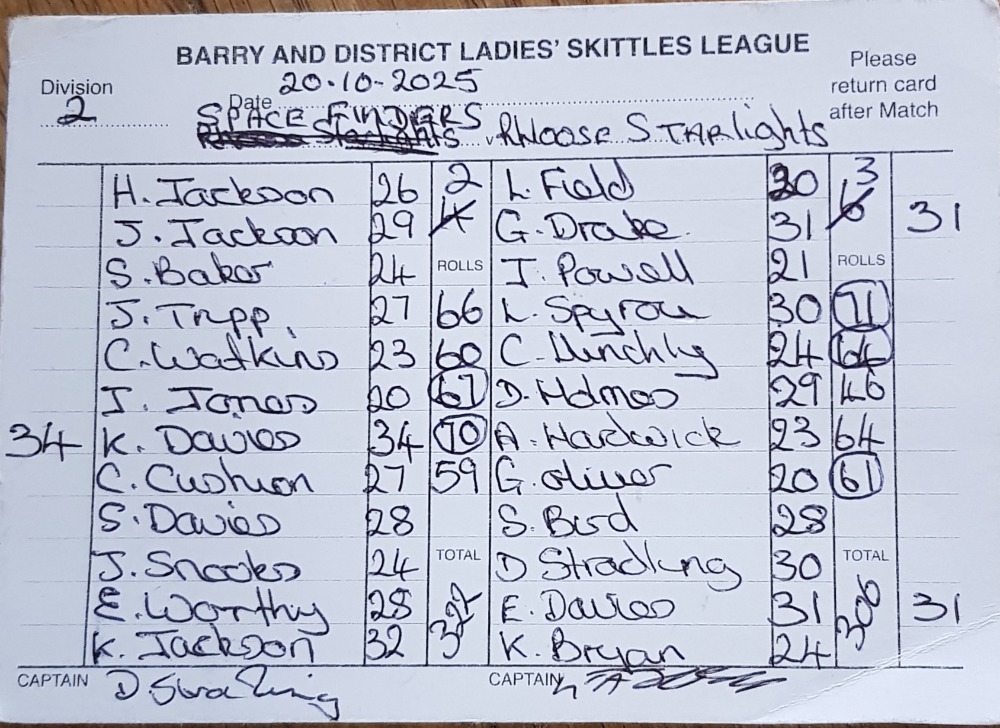 BARRY AND DISTRICT LADIES' SKITTLES LEAGUE
Division 2
Date 20-10-2025
Please return card after Match
SPACE FINDERS v RHOOSE STARlights
H. Jackson 26 2 L. Field 20 3
J. Jackson 29 4 G. Drake 31 6 31
S. Baker 24 ROLLS J. Powell 21 ROLLS
J. Tripp 27 66 L. Spyrou 30 71
C. Watkins 23 60 C. 24 64
J. Jones 20 67 D. Holmes 29 46
34 K. Davies 34 70 A. Hardwick 23 64
C. Cushion 27 59 G. oliver 20 61
S. Davies 28 S. Bird 28
J. Snooks 24 TOTAL D Stradling 30 TOTAL
E. Worthy 28 322 E. Davies 31 306 31
K. Jackson 32 K. Bryan 24
CAPTAIN D Stradling CAPTAIN